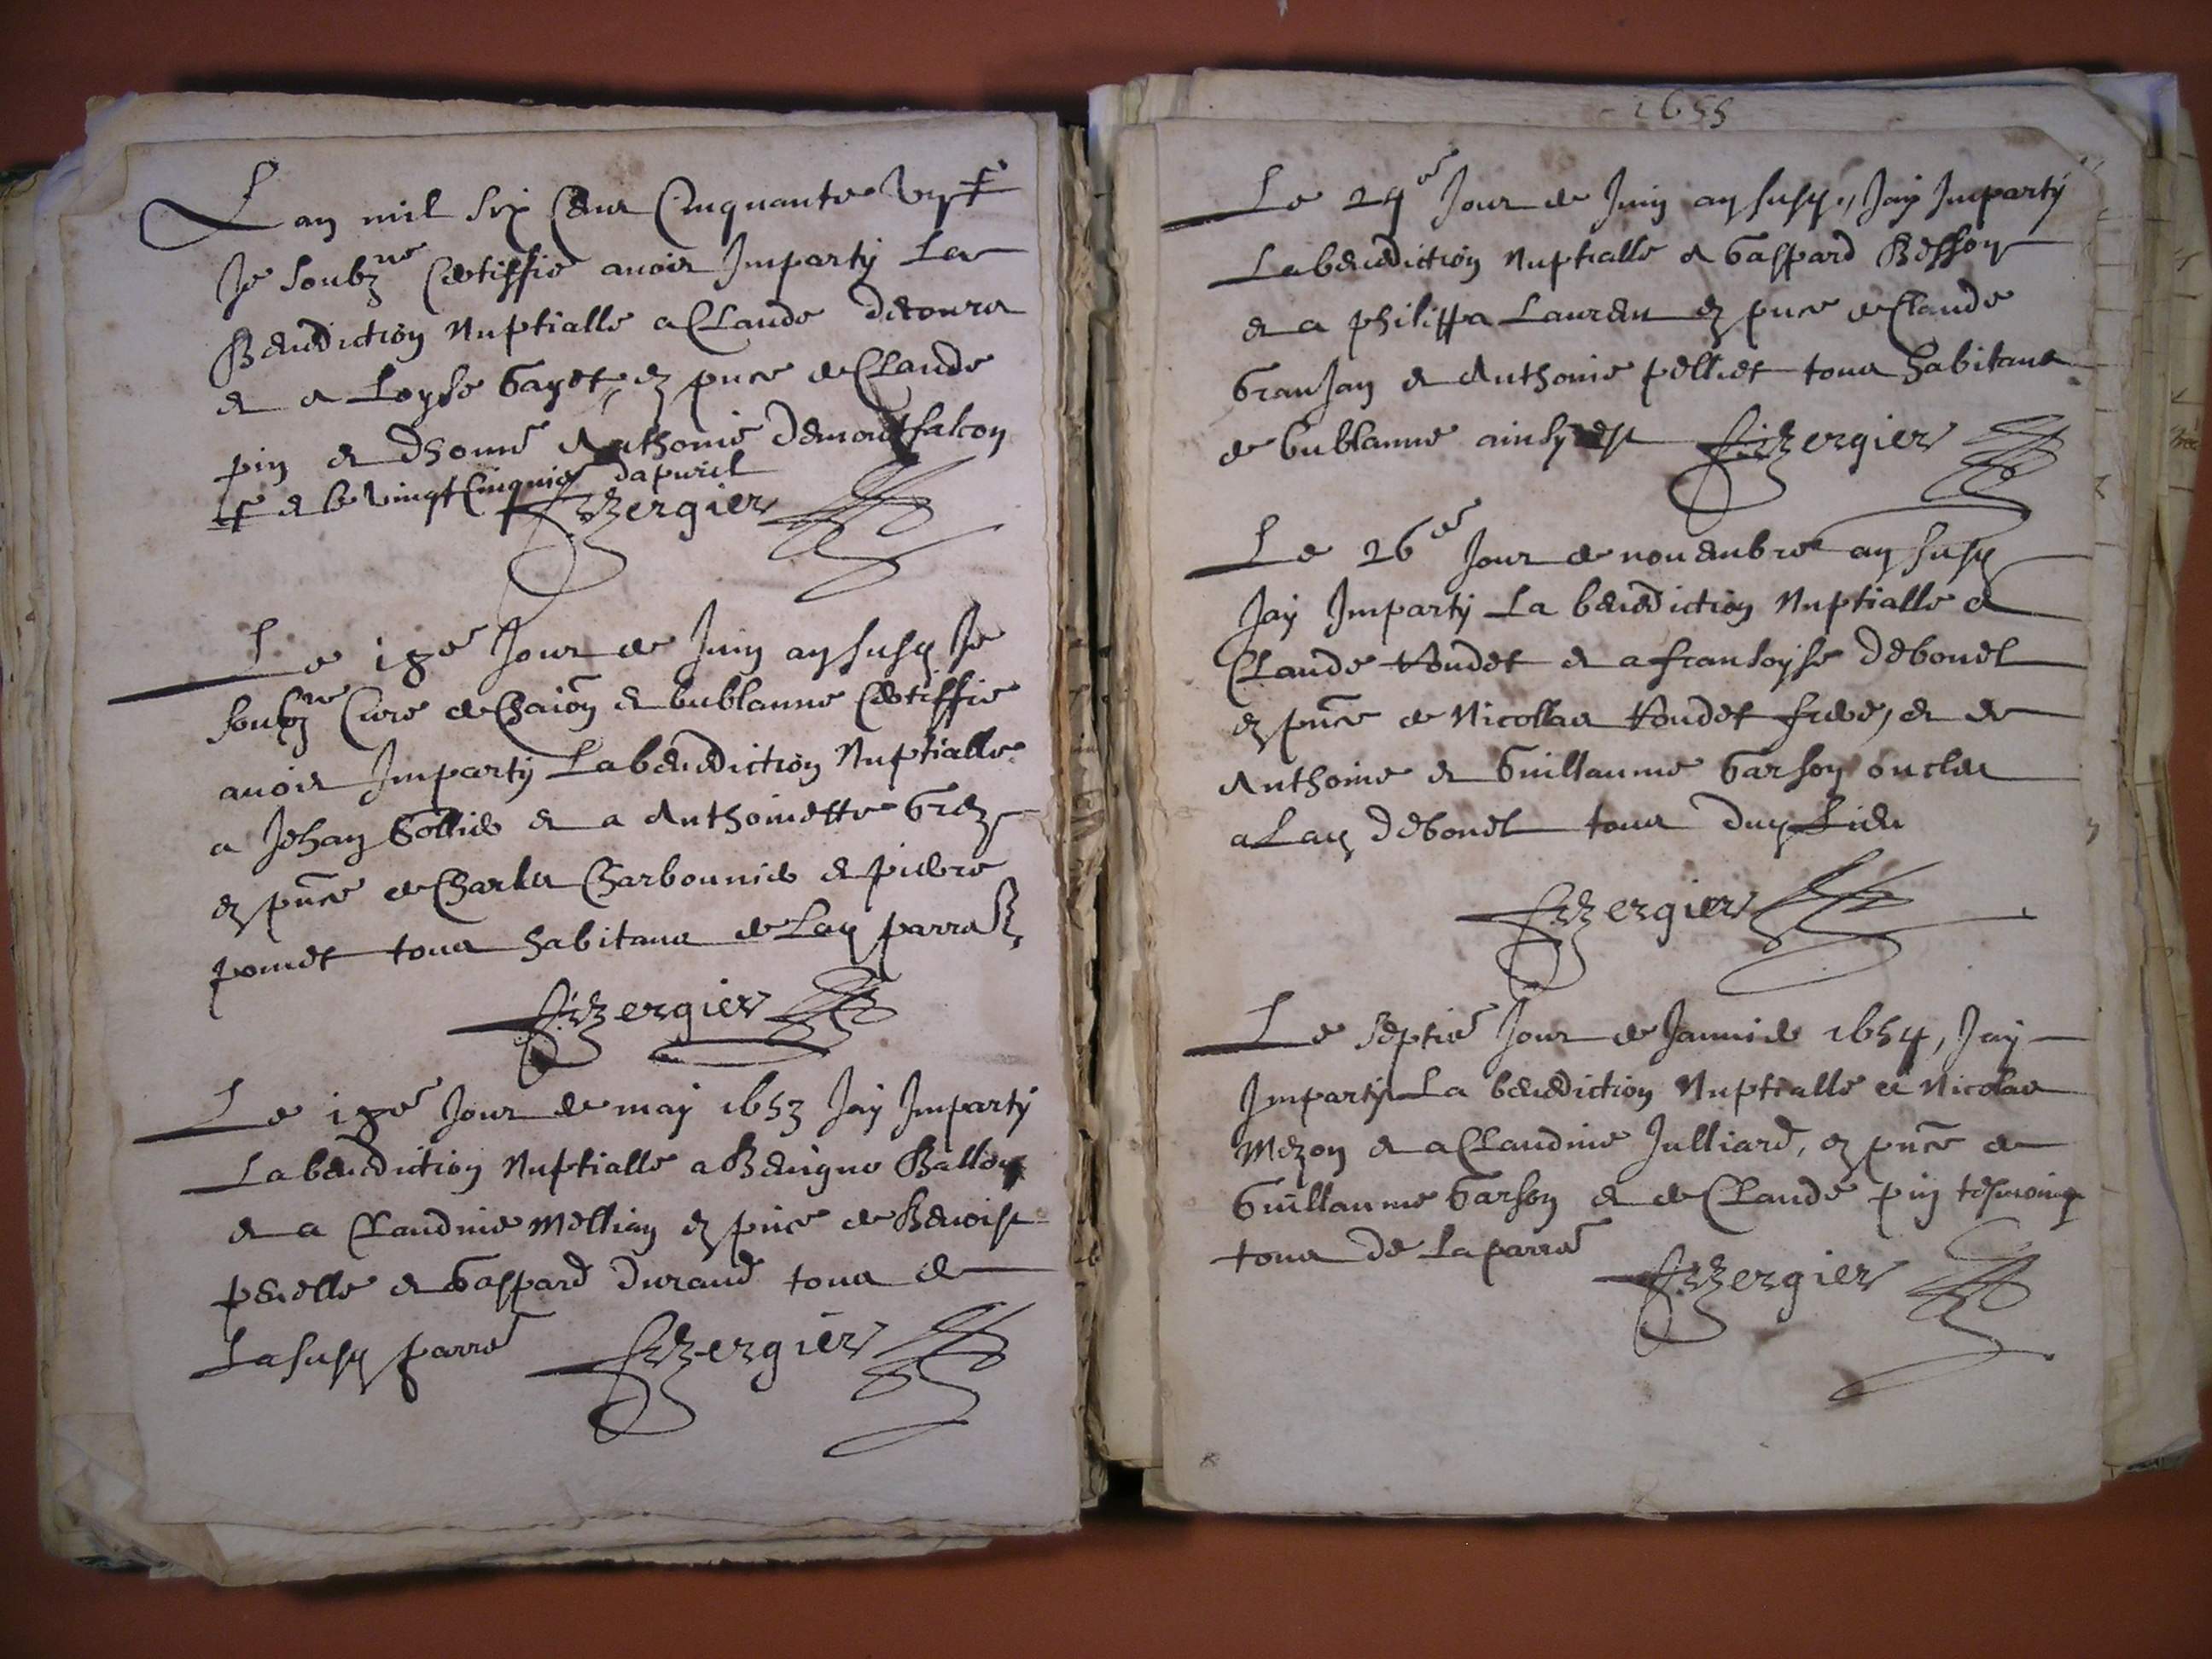 Lan mil six Cens Cinquante Vng #
Je soubz.ne Certiffie auoir Imparty La
Benediction Nuptialle a Claude
et a Loyse Gayet, ez pnce de Claude
pin et dhonne Anthoine demontfalcon
# et le vingt Cinquie dapuril
Bergier
Le 18e Jour de Juing an susd Je
soubz.ne Cure de et bublanne Certiffie
auoir Imparty La benediction Nuptialle
a Jehan Gollier et a Anthoinette
ez pnce de Charles Charbounier et pierre
pomet tous habitans de Lad parraß
Bergier
Le 18e Jour de may 1653 Jay Imparty
La benediction Nuptialle a Benigne Ballon
et a Claudine Mellian ez pnce de Benoist
et Gaspard durand tous de
La susd parre Bergier
1655
Le 24e Jour de Juing an susd, Jay Imparty
La benediction Nuptialle a Gaspard Besson
et a philippa Laurens ez pnce de Claude
Granjan et Anthoine pelliet tous habitans
de bublanne ainsy est Bergier
Le 26e Jour de nouembre an susd
Jay Imparty La benediction Nuptialle a
Claude et a fransoyse debouel
ez pnce de Nicollas frere, et de
Anthoine et Guillaume Garson oncles
a Lad debouel tous dud Lieu
Bergier
Le septie Jour de Januier 1654, Jay
Imparty La benediction Nuptialle a Nicolas
Mezon et a Claudine Julliard, ez pnce de
Guillaume Garson et de Claude pin tesmoings
tous de La parre Bergier